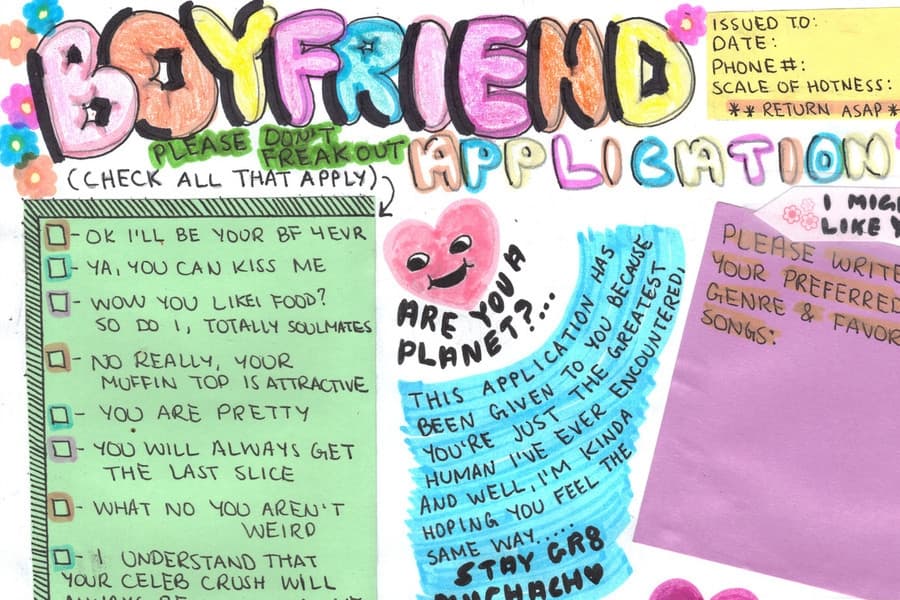 BOYFRIEND
PLEASE DON'T
FREAK OUT
APPLICATION
ISSUED TO:
DATE:
PHONE #:
SCALE OF HOTNESS:
** RETURN ASAP *
(CHECK ALL THAT APPLY)
- OK I'LL BE YOUR BF 4EVR
- YA, YOU CAN KISS ME
- WOW YOU LIKE FOOD?
SO DO I, TOTALLY SOULMATES
- NO REALLY, YOUR
MUFFIN TOP IS ATTRACTIVE
- YOU ARE PRETTY
- YOU WILL ALWAYS GET
THE LAST SLICE
- WHAT NO YOU AREN'T
WEIRD
- I UNDERSTAND THAT
YOUR CELEB CRUSH WILL
ARE YOU A
PLANET?...
THIS APPLICATION HAS
BEEN GIVEN TO YOU BECAUSE
YOU'RE JUST THE GREATEST
HUMAN I'VE EVER ENCOUNTERED,
AND WELL, I'M KINDA
HOPING YOU FEEL THE
SAME WAY.....
STAY GR8
MUCHACH♥
I MIG
LIKE Y
PLEASE WRITE
YOUR PREFERRED
GENRE & FAVOR
SONGS: